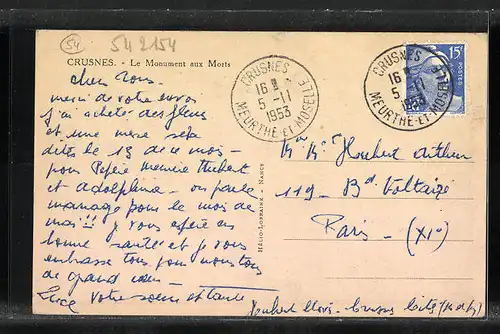 54
542154
CRUSNES. - Le Monument aux Morts
Chers Tous
merci de votre envoi
j'ai acheté des fleurs
et une messe sera
dites le 13 de ce mois -
pour Pépère Mémère Hubert
et Adolphine - on parle
mariage pour le mois de
mai !!! J vous espère en
bonne santé et je vous
embrasse tous pour nous tous
de grand cœur -
Luce votre sœur et tante
HÉLIO-LORRAINE - NANCY
CRUSNES
16 H
5 -11
1953
MEURTHE-ET-MOSELLE
CRUSNES
16 H
5 -11
1953
MEURTHE-ET-MOSELLE
15F
POSTES
Houbert Arthur
119 - Bd Voltaire
Paris - (XIe)
Houbert - Crusnes Cités (M et M)